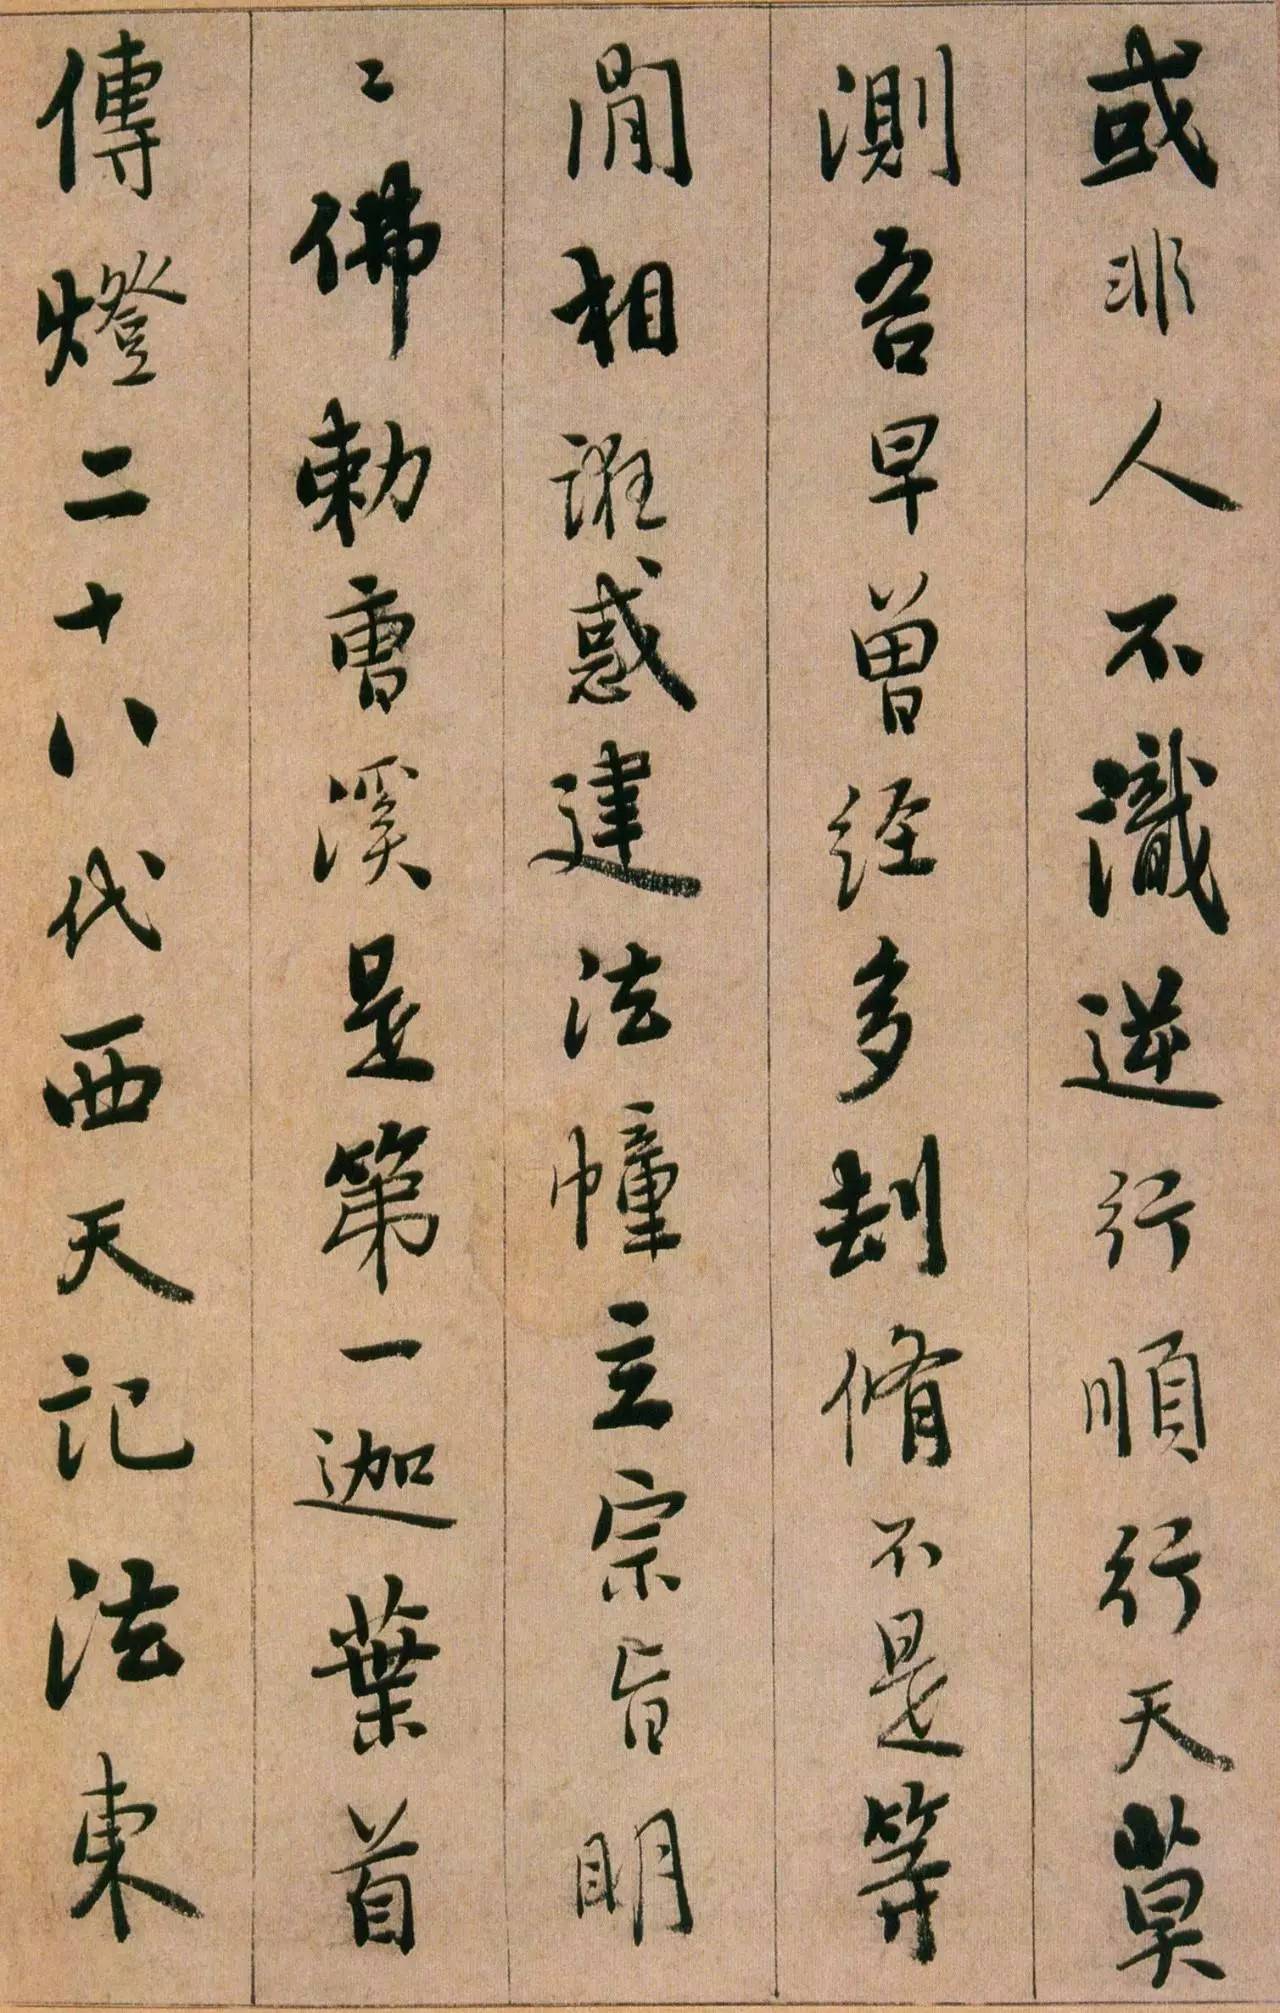 或非人不識逆行順行天莫
測吾早曾經多劫脩不是等
閒相誑惑建法幢立宗旨明
〻佛勅曹溪是第一迦葉首
傳燈二十八代西天記法東